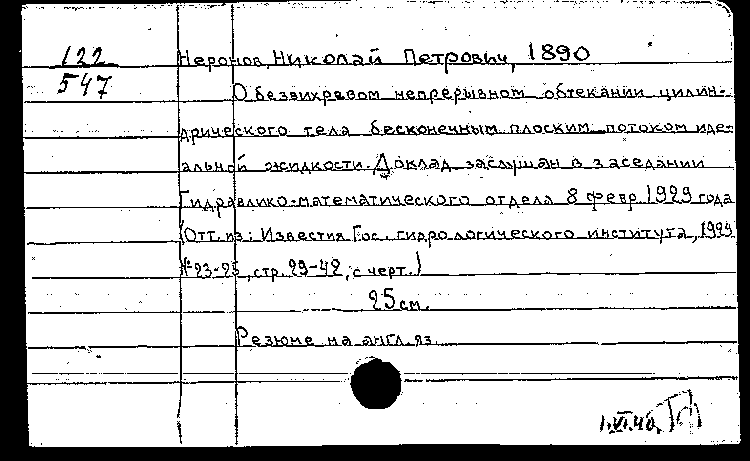 122
547
Неронов, Николай Петрович, 1890
О безвихревом непрерывном обтекании цилин-
дрического тела бесконечным плоским потоком иде-
альной жидкости. Доклад заслушан в заседании
Гидравлико-математического отдела 8 февр. 1929 года
(Отт. из: Известия Гос. гидрологического института, 1929
№ 23-25, стр. 29-42, с черт.)
25 см.
Резюме на англ. яз.
1.VI.40.